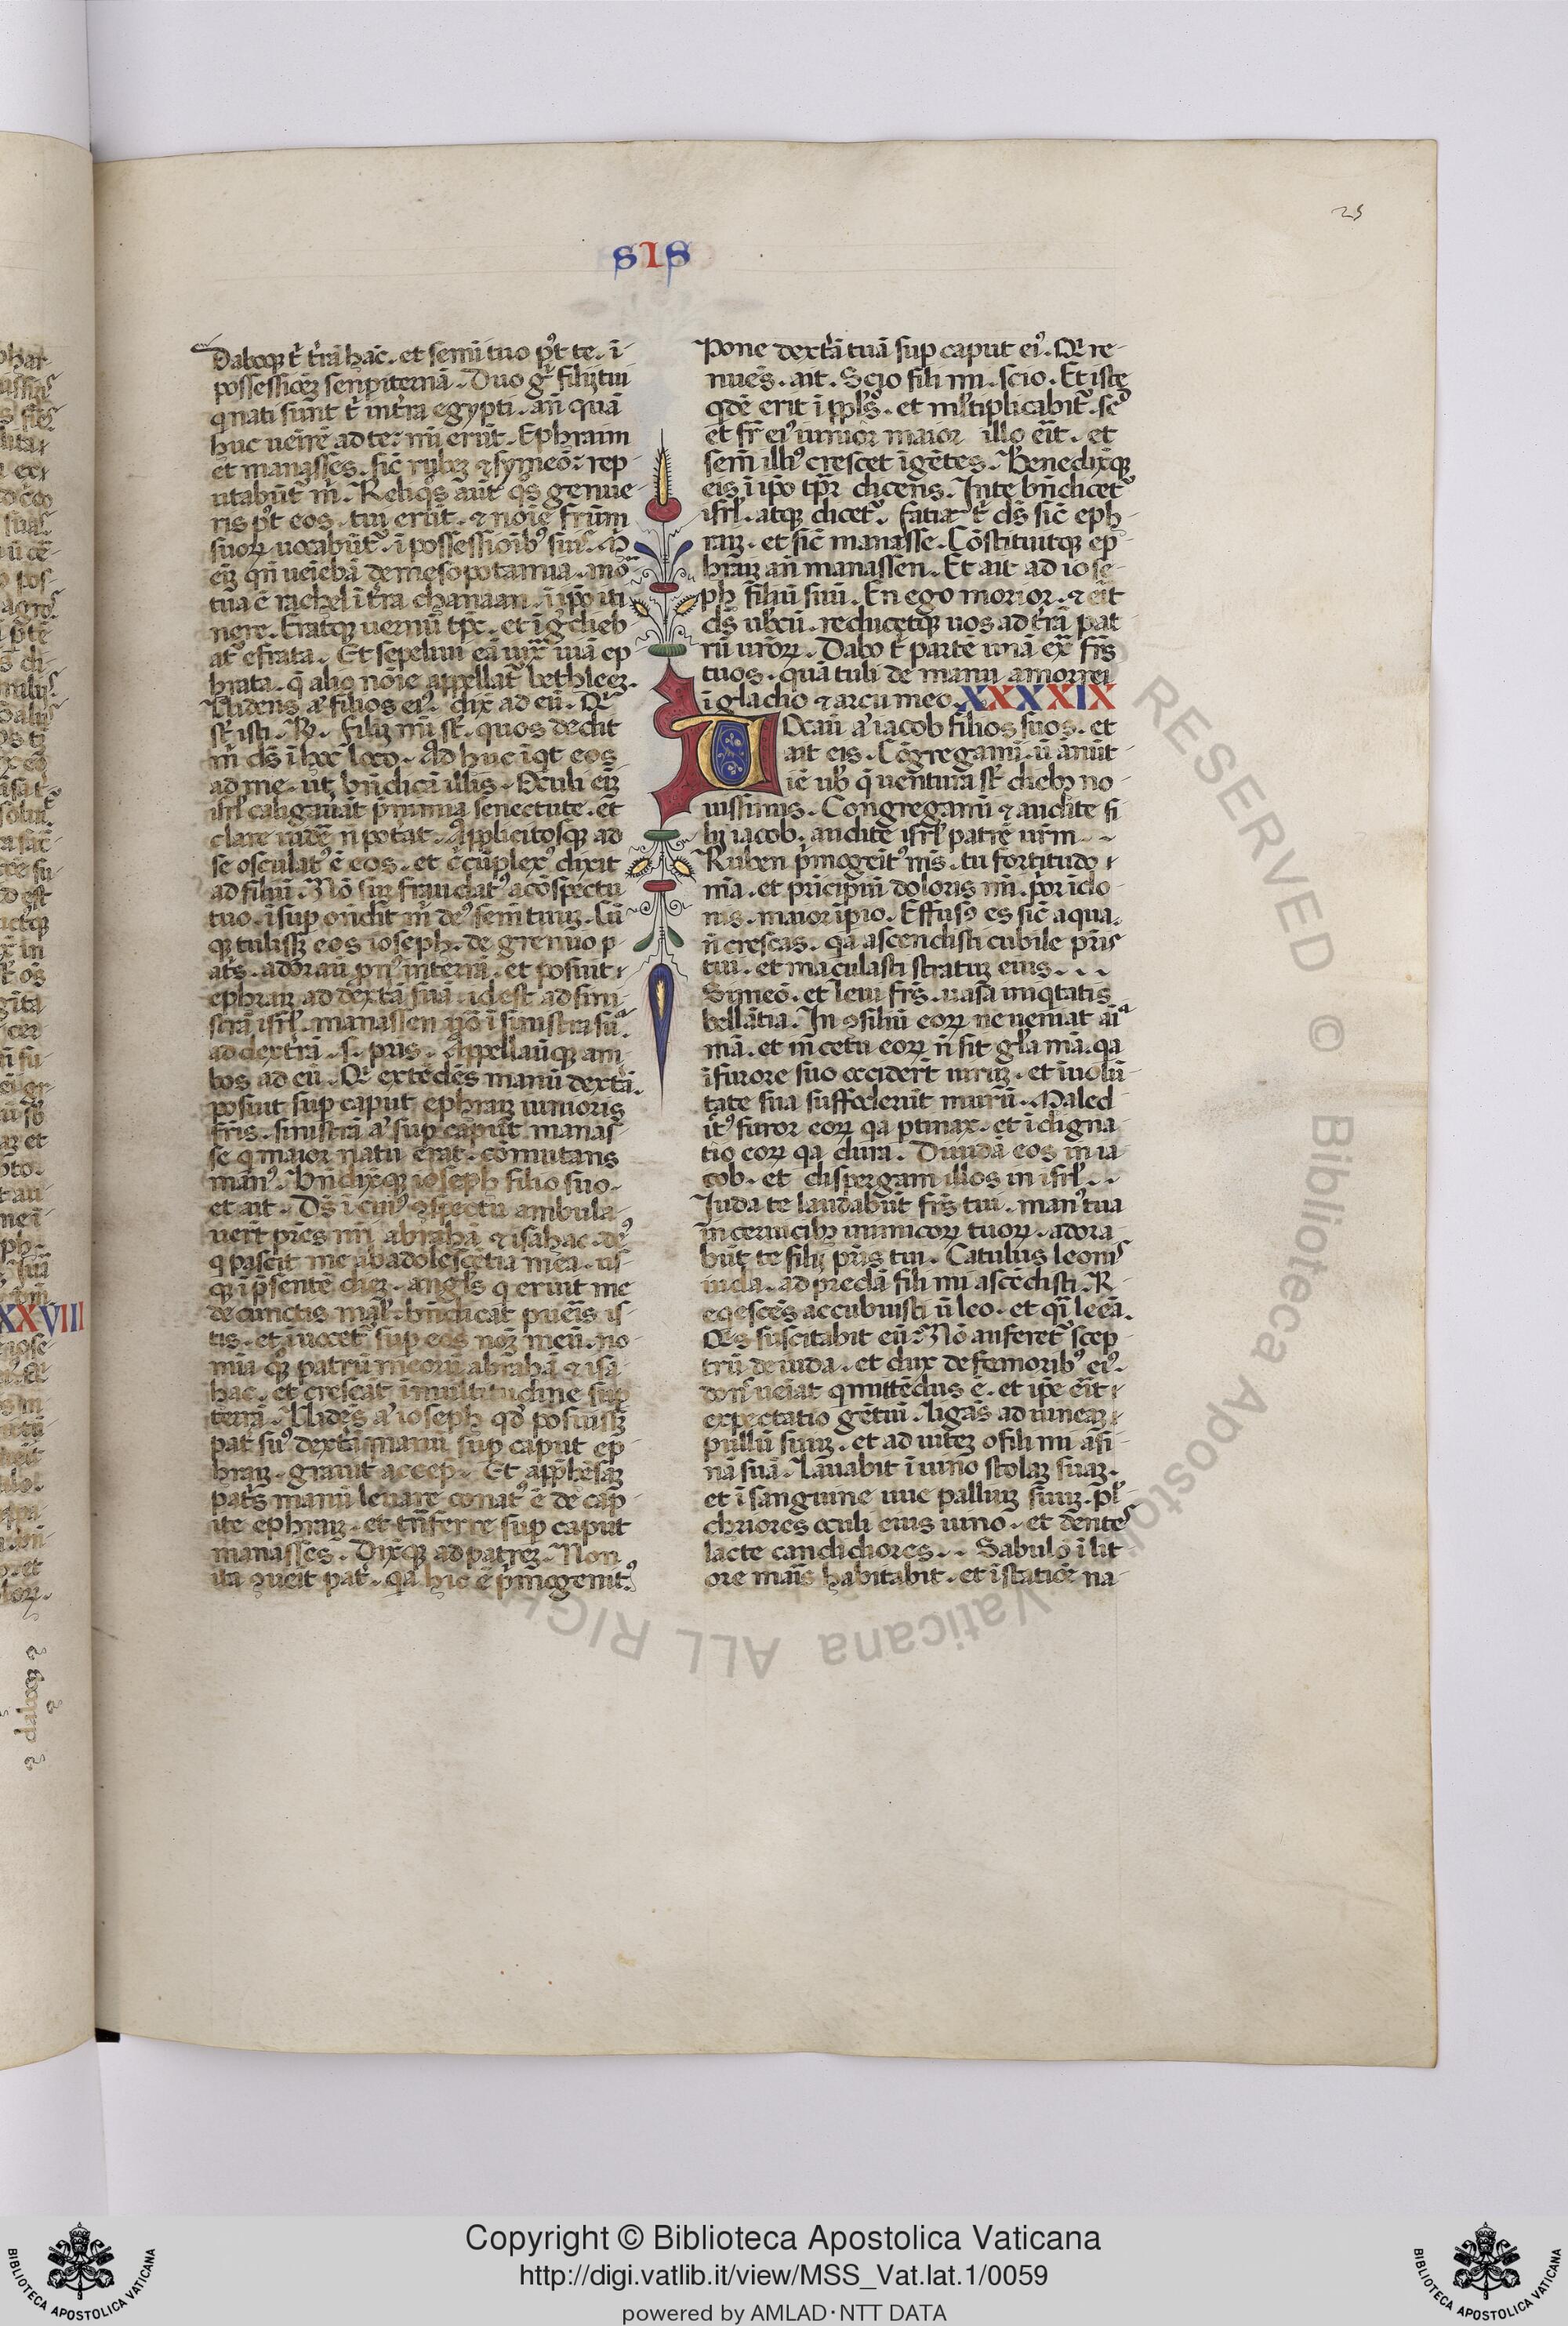 25
SIS
Daboq̨ t̄ t̄rā hāc. et semī tuo p't te. ī
possessiōeȝ sempiternā. Duo gͦ filij tui
q nati sunt t̄ in t̄ra egypti. añ quā
huc ueñre ad te: mī erūt. Ephraim
et manasses. sic̄ rubeȝ ⁊ symeō: rep
utabūt m̄. Reliqˢs aūt qˢs genue
ris p't eos. tui erūt. ⁊ noīe fr̄um
suoꝝ uocabūt'. ī possessioīb' suis. M̄
eīȝ qn̄ ueīebā de mesopotamia. mō
tua ē rachel ī t̄ra chanaan. ī ip̄o iti
nere. Eratq̨ uernū tp̄c. et īg̊dieb
at' efrata. Et sepeliui eā iux̄ uiā ep
hrata. q̄ alio noīe appellat' bethleeȝ.
Uidens a' filios ei'. dix̄ ad eū. Qⁱ
sr̄ isti. R̄. Filij mī sr̄. quos dedit
m̄ ds̄ ī hoc loco. Ad huc īqt eos
ad me. ut bn̄dicā illis. Oculi eīȝ
isr̄l caligauāt p̄ nimia senectute. et
clare uidē n̄ pot̄at. Applicitosq̨ ad
se osculat' ē eos. et cc̄uplex' dixit
ad filiū. Nō sū fraudat' a cōspectu
tuo. īsup ondit m̄ de' sem̄ tuuȝ. Cū
q̨ tulissȝ eos ioseph. de gremio p
at̄s. adorauī pn' in terrā. et posuit
ephraȝ ad dextā suā. id est ad sini
strā isr̄l. manassen ūo ī sinistra suᵃ.
ad dextrā .s. pris. Appellauīq̨ am
bos ad eū. Qⁱ extēdēs manū dextā.
posuit sup caput ephraȝ iunioris
fr̄is. sinistrā a' sup caput manas
se q maior natu erat. cōmutans
man'. Bn̄dixq̨ ioseph filio suo.
et ait. Ds̄ ī cui' ꝯspectu ambula
uer̄t pr̄es mī abrahā ⁊ isahac. de'
q pascit me ab adolescētia mea. us
q̨ ī p̄sentē dieȝ. angl's q eruit me
de cunctis mal'. bn̄dicat pueīs is
tis. et īuocet' sup eos noȝ meū. no
mīa q̨ patrū meorū abrahā ⁊ isa
hac. et crescat ī multitudine sup
terrā. Uidēs a' ioseph qd' posuissȝ
pat̄ su' dextā manū sup caput ep
hraȝ. grauit' accep̄. Et app̄hēsaȝ
patr̄s manū leuare conat' ē de cap
ite ephraȝ. et trāsferre sup caput
manasses. Dixq̨ ad patreȝ. Non
ita ꝯueīt pat̄. qa hic ē p̄mogenit'
Pone dextā tuā sup caput ei'. Qⁱ re
nuēs. ait. Scio fili mī. scio. Et iste
qdē erit ī ppl's. et ml'tiplicabit'. sͨ
et fr̄ ei' iunior maior illo eīt. et
sem̄ illi' crescet ī gētes. Benedixq̨
eis ī ip̄o tp̄r dicens. In te bn̄dicet'
isr̄l. atq̨ dicet'. Fatiat t̄ ds̄ sic̄ eph
raȝ. et sic̄ manasse. Cōstituitq̨ ep
hraȝ añ manassen. Et ait ad iose
ph filiū suū. En ego morior. ⁊ eīt
ds̄ ub'cū. reducetq̨ uos ad t̄rā pat
rū ur̄oꝝ. Dabo t̄ partē unā ex̄ fr̄s
tuos. quā tuli de manu amorrei
ī gladio ⁊ arcu meo. XXXXIX
Ocauī a' iacob filios suos. et
ait eis. Cōgregamī. ū ānūt
iē ub' q̄ uentura sr̄ dieb; no
uissimis. Congregamī ⁊ audite fi
lij iacob. audite isr̄l patrē ur̄m
Ruben p̄mogeīt' ms̄. tu fortitudo
mā. et principiū doloris mī. p̄or ī do
nis. maior īpio. Effus' es sic̄ aqua.
n̄ crescas. qa ascendisti cubile pr̄is
tui. et maculasti stratuȝ eius.
Symeō. et leui fr̄s. uasa iniqtatis
bellātia. In ꝯsiliū eoꝝ ne ueniat aīᵃ
mā. et in cetu eoꝝ n̄ sit gl'a mā. qa
ī furore suo occider̄t uiruȝ. et ī uolū
tate sua suffoderūt murū. Maled
it' furor eoꝝ qa ptinax. et īdigna
tio eoꝝ qa dura. Diuidā eos in ia
cob. et dispergam illos in isr̄l.
Iuda te laudabūt fr̄s tui. man' tua
in ceruicib; inimicoꝝ tuoꝝ. adora
būt te filij pr̄is tui. Catulus leonis
iuda. ad predā fili mi ascēdisti. R
eqescēs accubuisti ū leo. et qī leēa.
Qis suscitabit eū: Nō auferet' scep
trū de iuda. et dux de femorib' ei'.
don' ueīat q mittēdus ē. et ip̄e eīt
expectatio gētiū. Ligās ad uineaȝ
pullū suuȝ. et ad uiteȝ o fili mi asi
nā suā. Lauabit ī uino stolaȝ suaȝ.
et ī sanguine uue palliuȝ suuȝ. Pl'
chriores oculi eius uino. et dentes
lacte candidiores. Sabulō ī lit
ore maīs habitabit. et ī statiōe na
XXVIII
RESERVED © Biblioteca Apostolica Vaticana ALL RIGH
Copyright © Biblioteca Apostolica Vaticana
http://digi.vatlib.it/view/MSS_Vat.lat.1/0059
powered by AMLAD·NTT DATA
BIBLIOTECA APOSTOLICA VATICANA
BIBLIOTECA APOSTOLICA VATICANA